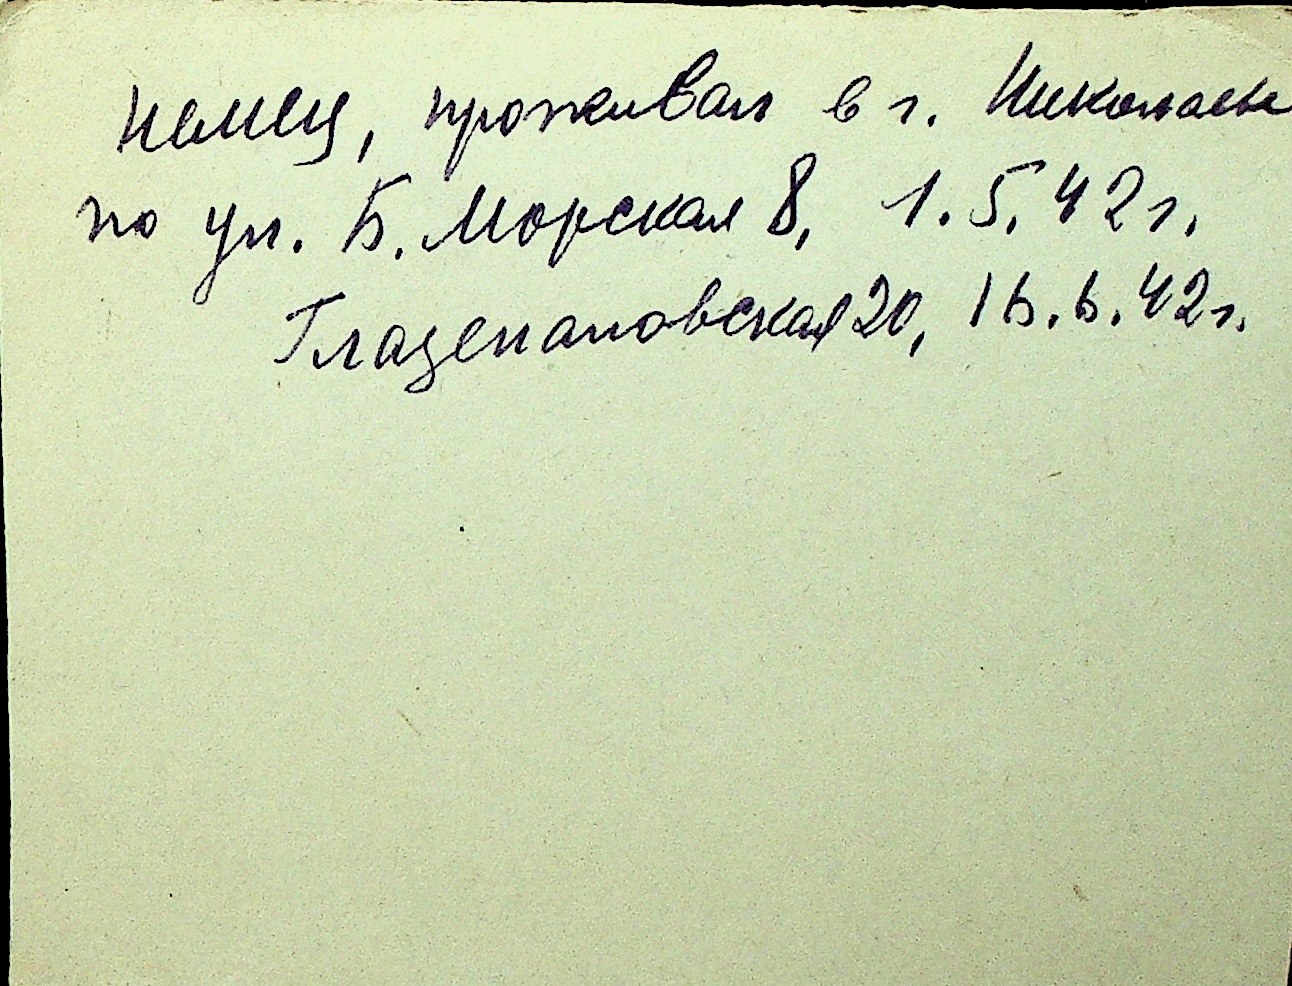 немец, проживал в г. Николаеве
по ул. Б. Морская 8, 1.5.42г.
Глазенаповская 20, 16.6.42г.